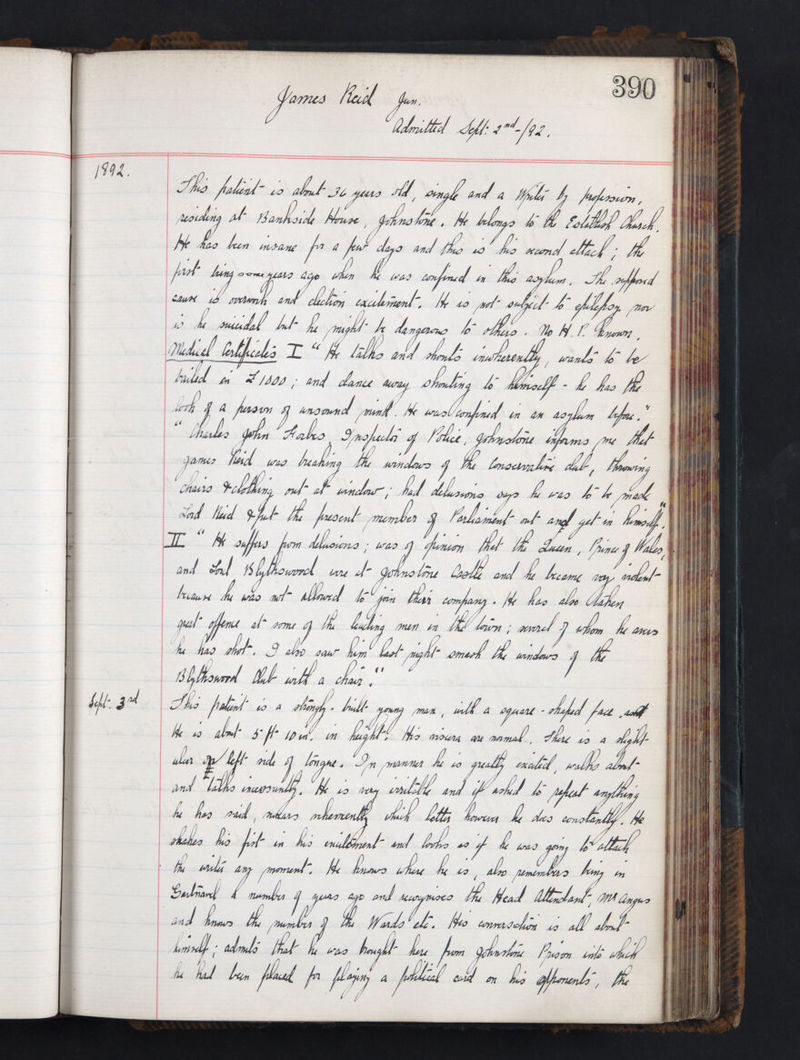 390
James Reid Jun.
Admitted Sept: 2nd-/92.
1892.
This patient is about 36 years old, single and a Writer by profession,
residing at Bankside House, Johnstone. He belongs to the Establish Church.
He has been insane for a few days and this is his second attack; the
first being some years ago when he was confined in this asylum. The supposed
cause is overwork and election excitement. He is not subject to epilepsy nor
is he suicidal but he might be dangerous to others. No H.P. known.
Medical Certificates I " He talks and shouts incoherently, wants to be
bailed in £1000; and dance away shouting to himself - he has the
look of a person of unsound mind. He was confined in an asylum before."
" Charles John Forbes, Inspector of Police, Johnstone informs me that
James Reid was breaking the windows of the Conservative club, throwing
chairs & clothing out at window; had delusions says he was to be made
Lord Reid & put the present member of Parliament out and get in himself."
II " He suffers from delusions; was of opinion that the Queen, Prince of Wales,
and Lord Blythswood were at Johnstone Castle and he became very violent
because he was not allowed to join their company. He has also taken
great offence at some of the leading men in the town; several of whom he avers
he has shot. I also saw him last night smash the windows of the
Blythswood Club with a chair."
Sept. 3rd This patient is a strongly-built young man, with a square-shaped face
He is about 5 ft 10 in. in height. His viscera are normal. There is a slight
ulcer on left side of tongue. In manner he is greatly excited, walks about
and talks incessantly. He is very irritable and if asked to repeat anything
he has said, swears vehemently which latter however he does constantly. He
shakes his fist in his excitement and looks as if he was going to attack
the writer any moment. He knows where he is, also remembers being in
Gartnavel a number of years ago and recognises the Head Attendant, Mr Angus
and knows the number of the Wards etc. His conversation is all about
himself; admits that he was brought here from Johnstone Prison into which
he had been placed for playing a political card on his opponents, the